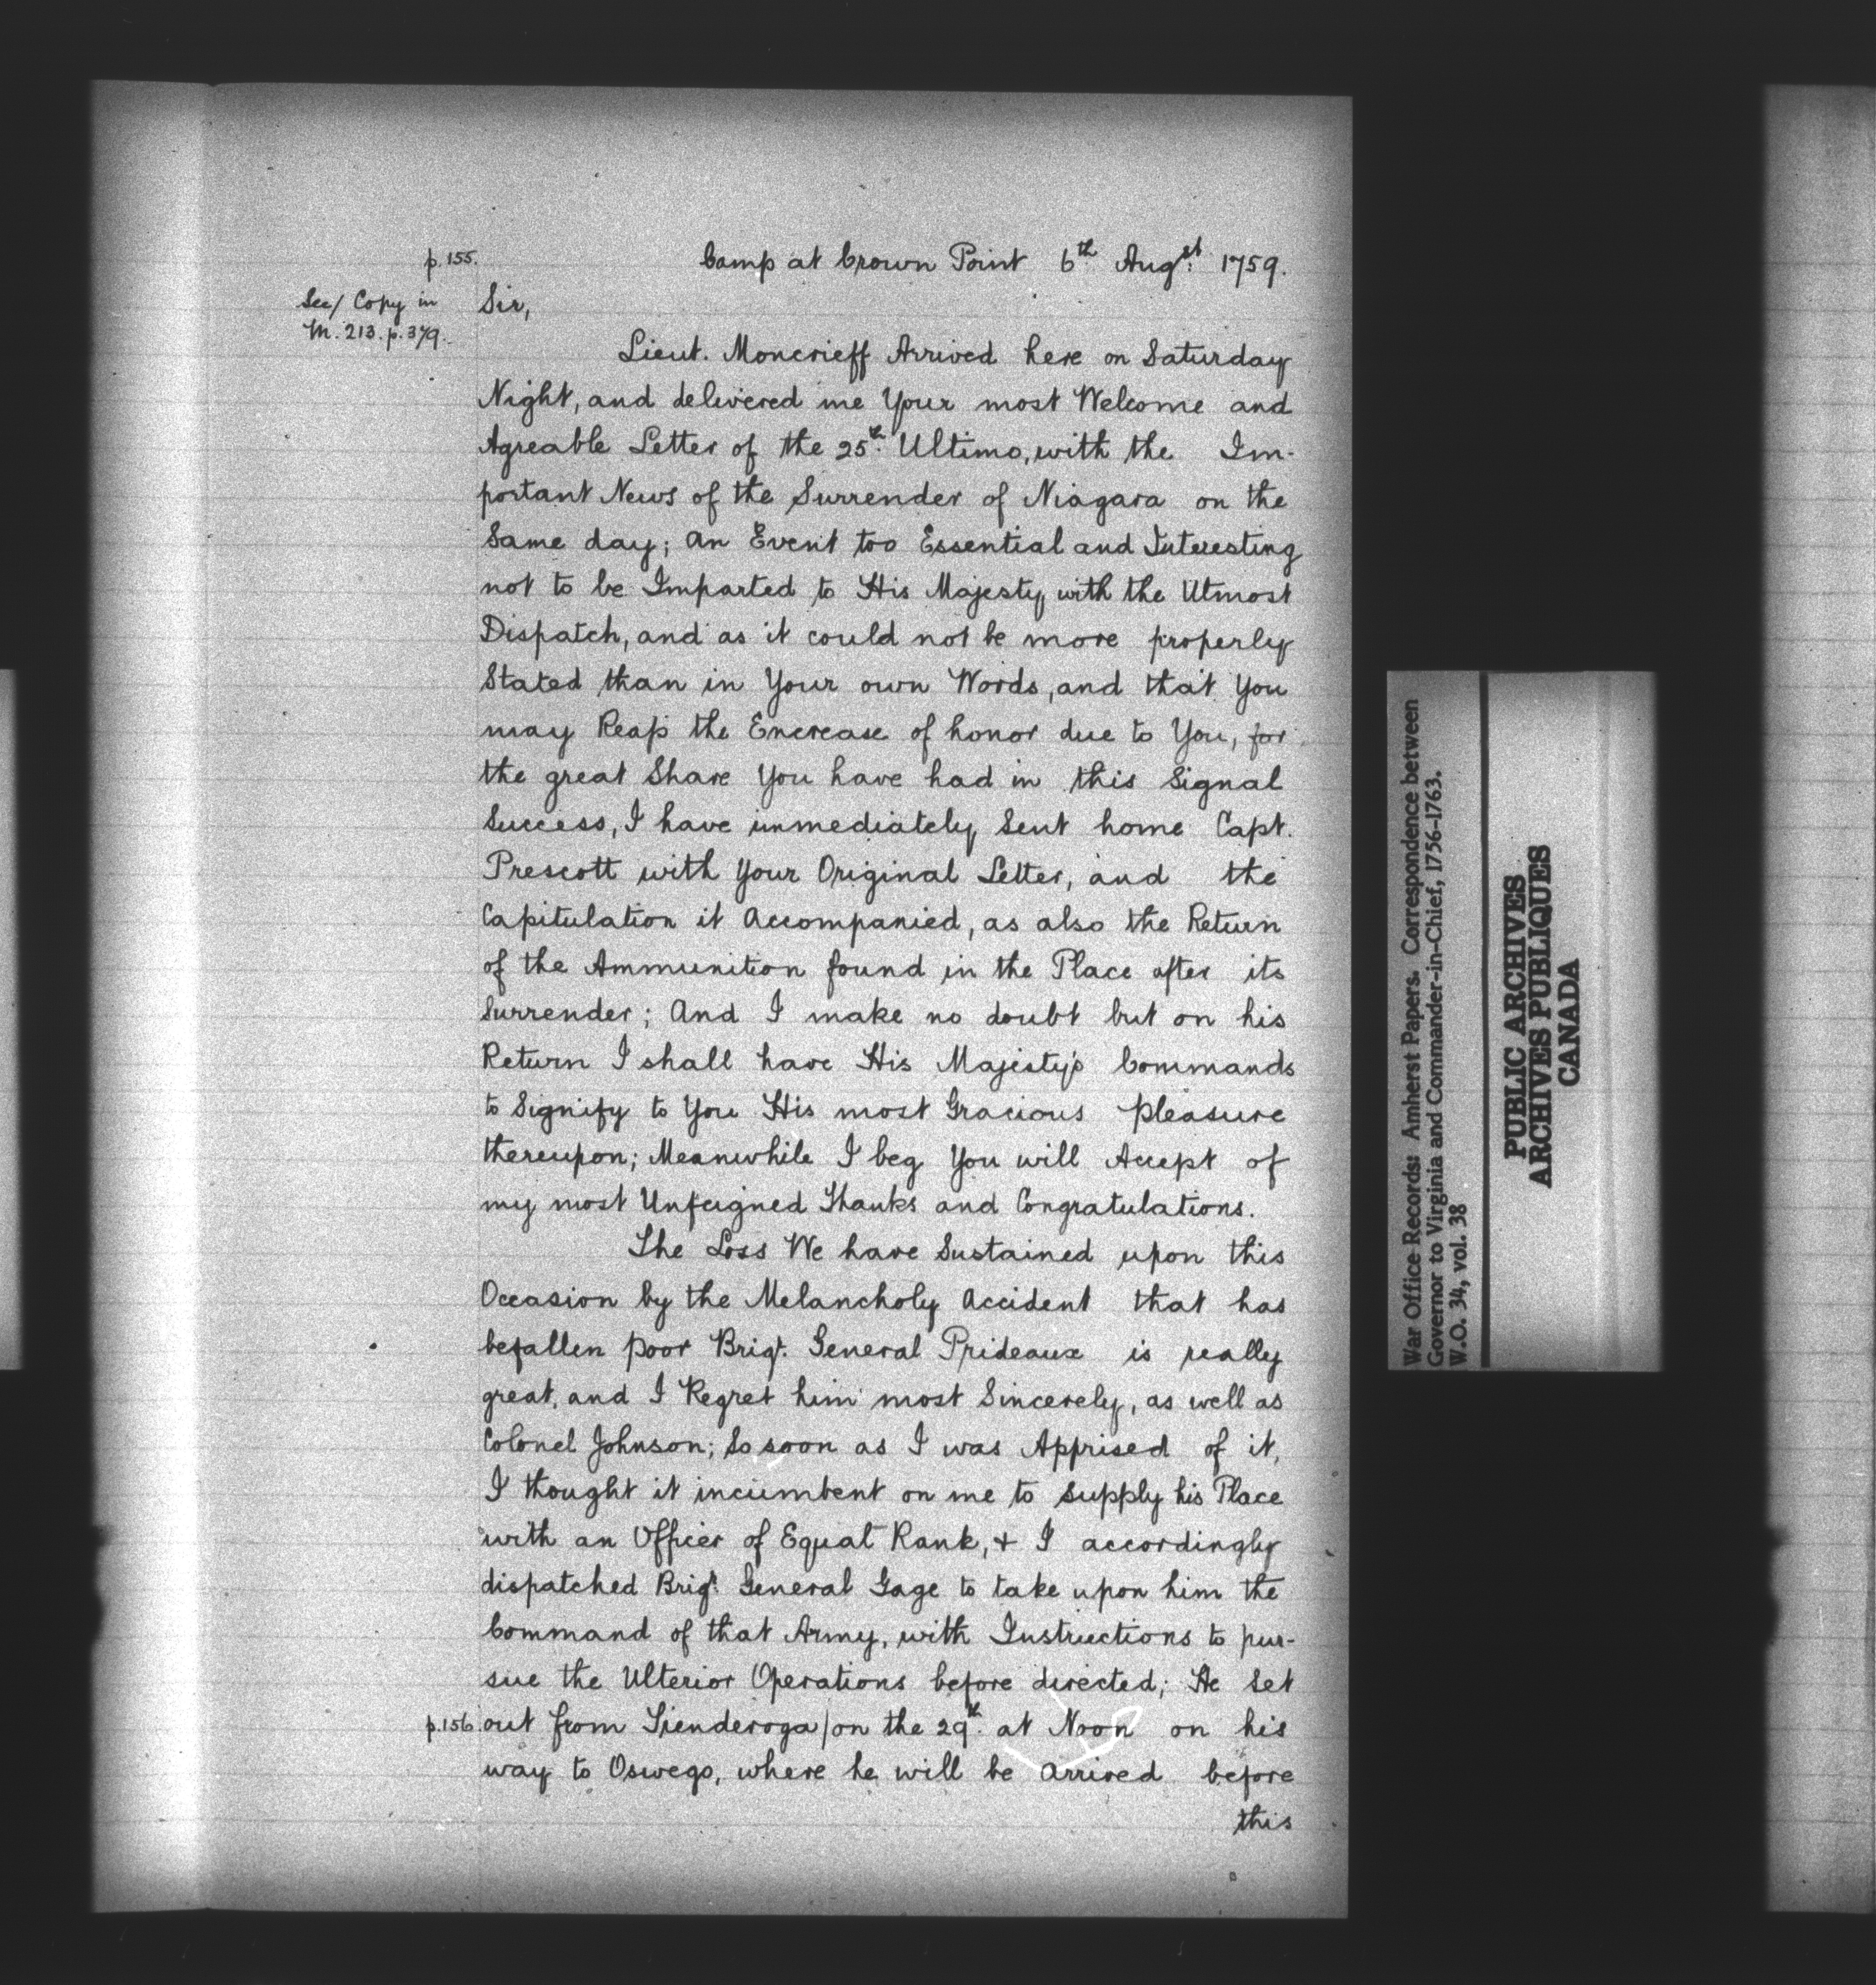 p.155.
Camp at Crown Point 6th Augst 1759.
See/ Copy in
M. 213. p. 379.
Sir,
Lieut. Moncrieff Arrived here on Saturday
Night, and delivered me Your most Welcome and
Agreable Letter of the 25th Ultimo, with the Im-
portant News of the Surrender of Niagara on the
Same day; an Event too Essential and Interesting
not to be Imparted to His Majesty with the Utmost
Dispatch, and as it could not be more properly
Stated than in Your own Words, and that You
may Reap the Encrease of honor due to You, for
the great Share You have had in this Signal
Success, I have immediately Sent home Capt.
Prescott with Your Original Letter, and the
Capitulation it Accompanied, as also the Return
of the Ammunition found in the Place after its
Surrender; And I make no doubt but on his
Return I shall have His Majesty's Commands
to Signify to You His most Gracious pleasure
thereupon; Meanwhile I beg You will Accept of
my most Unfeigned Thanks and Congratulations.
The Loss We have Sustained upon this
Occasion by the Melancholy Accident that has
befallen poor Brigr. General Prideaux is really
great, and I Regret him most Sincerely, as well as
Colonel Johnson; So soon as I was Apprised of it,
I thought it incumbent on me to supply his Place
with an Officer of Equal Rank, & I accordingly
dispatched Brigr. General Gage to take upon him the
Command of that Army, with Instructions to pur-
sue the Ulterior Operations before directed; He Set
p.156. out from Tienderoga/on the 29th at Noon on his
way to Oswego, where he will be arrived before
this
War Office Records: Amherst Papers. Correspondence between
Governor to Virginia and Commander-in-Chief, 1756-1763.
W.O. 34, vol. 38
PUBLIC ARCHIVES
ARCHIVES PUBLIQUES
CANADA